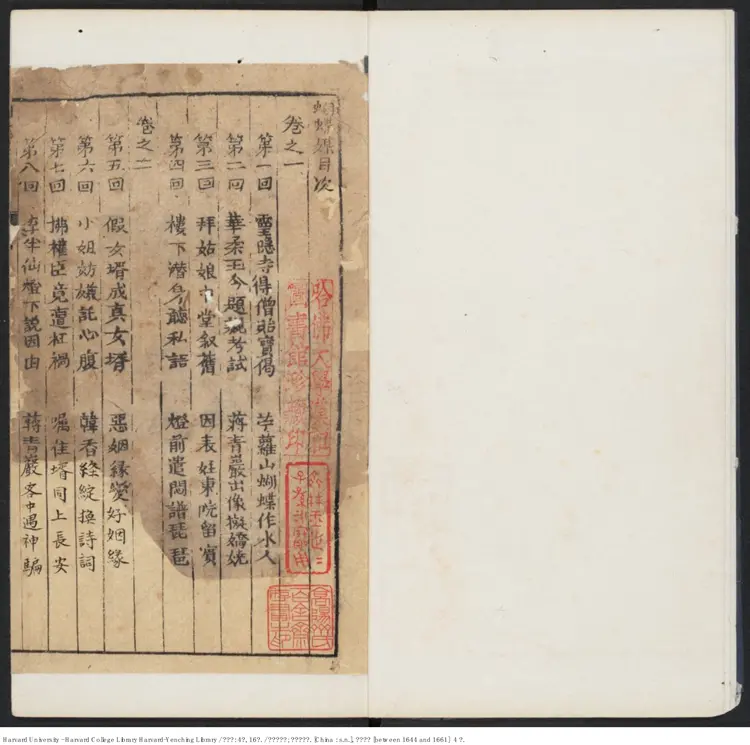 蝴蝶媒目次
卷之一
第一回 靈隱寺得僧貽寶偈 苧蘿山蝴蝶作氷人
第二回 華柔玉今題 考試 蔣青巖出像擬嬌姺
第三回 拜姑娘中堂叙舊 因表妊東院留賓
第四回 樓下潛身聽私語 燈前遣悶譜琵琶
卷之二
第五回 假女壻成真女壻 惡姻緣變好姻緣
第六回 小姐妨嫌託心腹 韓香綫綻換詩詞
第七回 拂權臣竟遭杠禍 嘱住壻同上長安
第八回 李半仙燈下説因由 蔣青巖客中遇神騙
哈佛大學漢和
圖書館珍藏印
Harvard University - Harvard College Library Harvard-Yenching Library / ???: 4?, 16?. / ?????; ?????. [China : s.n.], ???? [between 1644 and 1661] 4 ?.